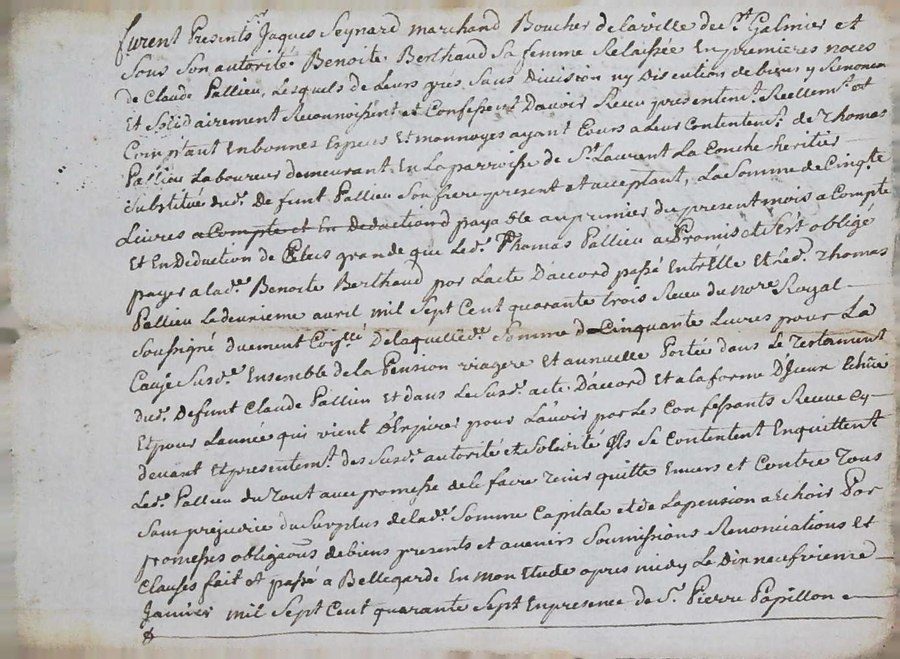 furent Presents Jaques Seynard marchand Boucher de la ville de St Galmier et
Sous Son autorité Benoite Berthaud Sa femme Relaissée En premieres noces
de Claude Pallieu, Lesquels de Leurs gres Sans Division ny Discution de biens y Renoncn
Et Solidairement Reconnoissent et Confessent D'avoir Receu presentent. Reellemt. et
Comptant En bonnes Especes Et monnoyes ayant Cours a Leur Contentemt. de Thomas
Pallieu Laboureur demeurant En La parroisse de St Laurent La Conche heritier
Substitué dud. Defunt Pallieu Son frere present et acceptant, La Somme de Cinqte
Livres a Compte et En Deduction payable au premier du present mois a Compte
Et En Deduction de Plus grande que Led. Thomas Pallieu a Promis et S'est obligé
payer a lad. Benoite Berthaud par Lacte D'accord passé Entr'Elle et Led. Thomas
Pallieu Le deuxieme avril mil Sept Cent quarante trois Receu du nore Royal
Soussigné duement De laquelle de. Somme de Cinquante Livres pour La
Cause Susd. Ensemble de la Pension viagere Et annuelle Portée dans Le Testament
dud. Defunt Claude Pallieu et dans Le Susd. acte D'accord Et a la forme D'Jceux
Et pour L'année qui vient D'Expirer pour L'avoir par Les Confessants Receue Cy
devant et presentemt. des Susd. autorité et Solidité Jls Se Contentent En quittent
Led. Pallieu du tout avec promesse de le faire tenir quitte Envers et Contre Tous
Sans prejudice du Surplus de lad. Somme Capitale et de La pension a Echoir Par
promesses obligaons de biens presents et avenirs Soumissions Renonciations Et
Clauses fait et passé a Bellegarde En mon Etude apres midy Le Dixneufvieme
Janvier mil Sept Cent quarante Sept En presence de Sr. Pierre Papillon